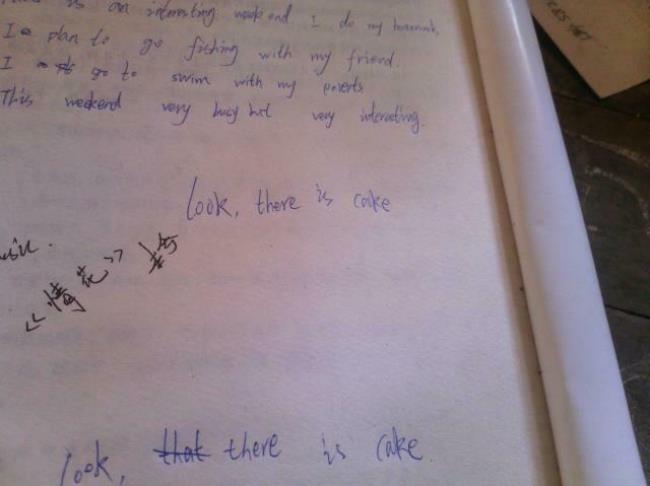 is an interesting weekend I do my homework,
I plan to go fishing with my friend.
I go to swim with my parents
This weekend very busy but very interesting.
look, there is cake
《情花》
look, that there is cake.